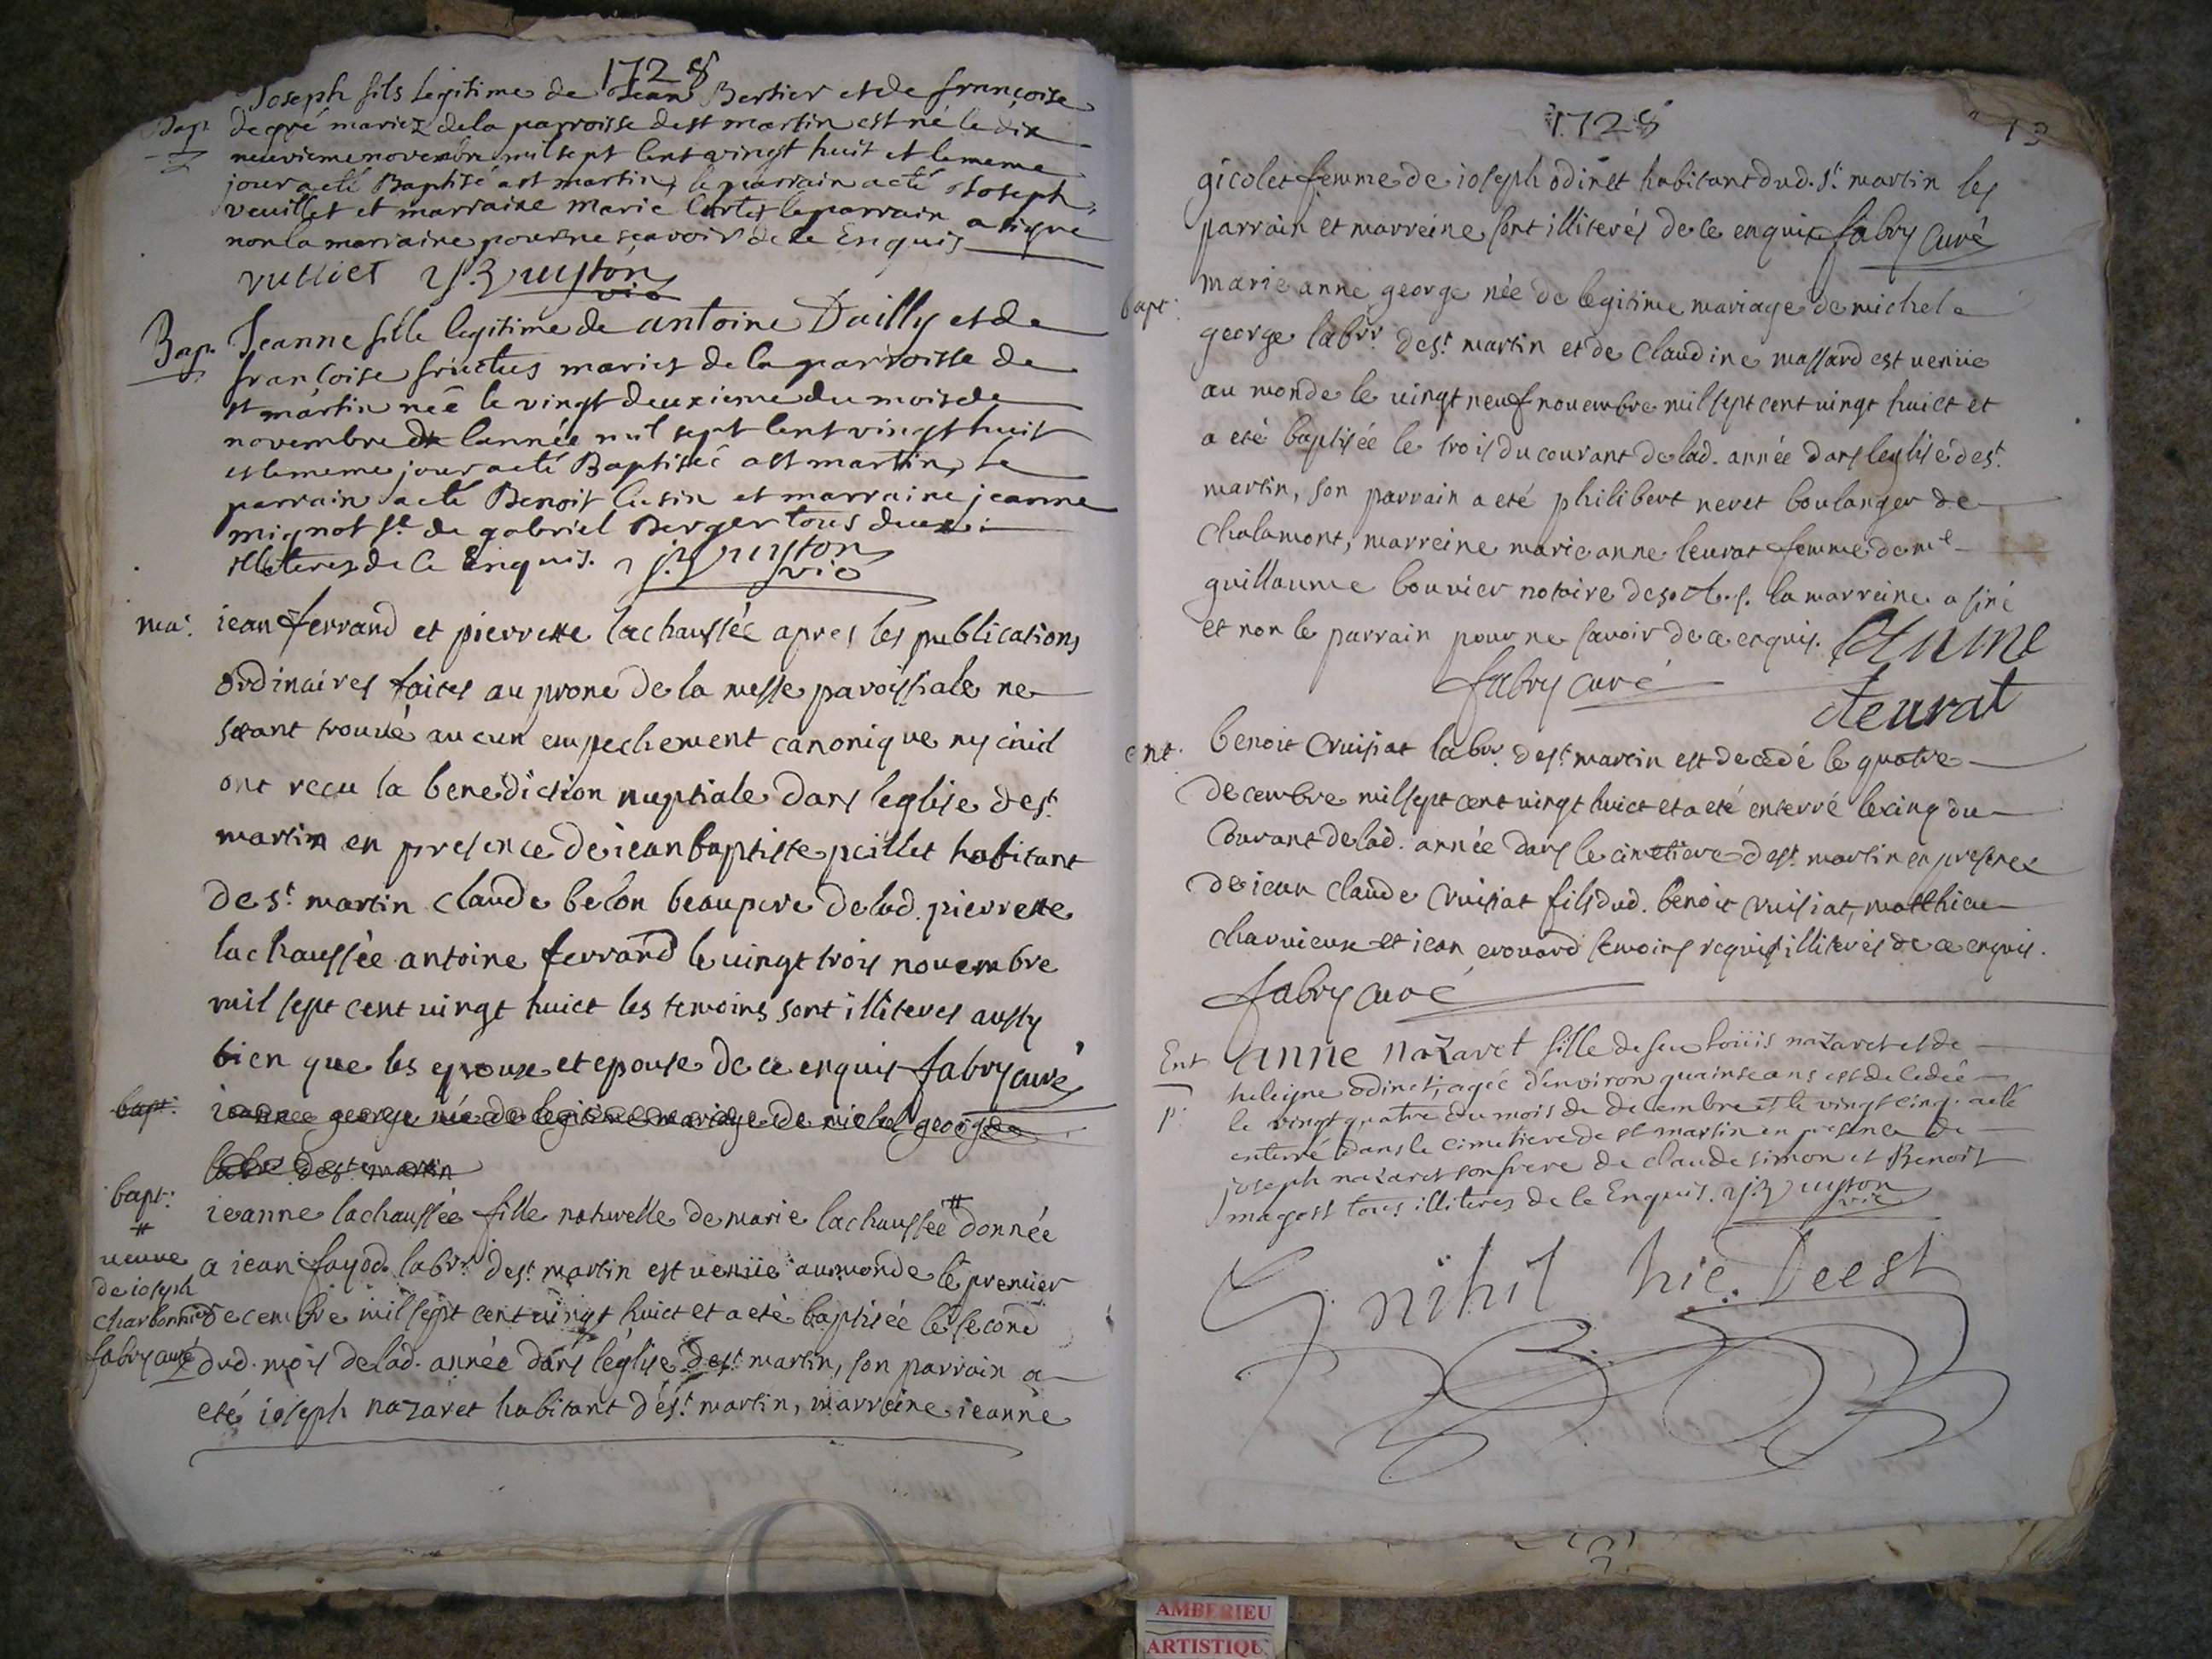 1728
Joseph fils legitime de Jean Bertier et de françoise
Bap. depré mariez de la parroisse de st martin est né le dix
neuvieme novembre mil sept cent vingt huit et le meme
jour a eté Baptisé a st martin, le parrain a eté Joseph
veuillet et marraine marie a signe
non la marraine pour ne sçavoir de ce Enquis
vulliet vic
Bap. Jeanne fille legitime de antoine Dailly et de
françoise fructus mariez de la parroisse de
st martin née le vingt deuxieme du mois de
novembre de lannée mil sept cent vingt huit
et le meme jour a eté Baptisée a st martin, le
parrain a eté Benoit cusin et marraine jeanne
mignot fe. de gabriel Berger tous deux
illiteres de ce Enquis. vic
mar. iean ferrand et pierrette lachaussée apres les publications
ordinaires faites au prone de la messe paroissiale ne
sétant trouvé aucun empechement canonique ny civil
ont recu la benediction nuptiale dans leglise de st.
martin en presence de iean baptiste peillet habitant
de st. martin claude belon beaupere de lad. pierrette
lachaussée antoine ferrand le vingt trois novembre
mil sept cent uingt huict les temoins sont illiteres aussy
bien que les epoux et epouse de ce enquis fabry curé
bapt: ieanne george née de legitime mariage de michel george
labr. de st. martin
bapt: ieanne lachaussée fille naturelle de marie lachaussée # donnée
# ueuve de ioseph charbonnier fabry curé
a iean fayod labr. de st. martin est venüe au monde le premier
decembre mil sept cent uingt huict et a eté baptisée le second
dud. mois de lad. année dans léglise de st. martin, son parrain a
eté ioseph nazaret habitant de st. martin, marreine ieanne
1728
13
gicolet femme de ioseph odinet habitant dud. st. martin les
parrain et marreine sont illiterés de ce enquis fabry curé
bapt: marie anne george née de legitime mariage de michel
george labr. de st. martin et de claudine massard est venüe
au monde le uingt neuf nouembre mil sept cent uingt huict et
a eté baptisée le trois du courant de lad. année dans leglise de st.
martin, son parrain a eté philibert neret boulanger de
chalamont, marreine marie anne leurat femme de me
guillaume bouvier notaire de la marreine a siné
et non le parrain pour ne savoir de ce enquis. Anne
fabry curé leurat
ent. benoit cruisiat labr. de st. martin est decedé le quatre
decembre mil sept cent uingt huict et a eté enterré le cinq du
courant de lad. année dans le cimetiere de st. martin en presence
de iean claude cruisiat fils dud. benoit cruisiat, matthieu
charvieux et iean erouard temoins requis illiterés de ce enquis.
fabry curé
Ent p. anne nazaret fille de feu loüis nazaret et de
heleigne odinet, agée d'environ quinse ans est decedée
le vingt quatre du mois de decembre et le vingt cinq a eté
enterré dans le cimetiere de st martin en presence de
joseph nazaret son frere de claude simon et Benoit
magost tous illiteres de ce Enquis. vic
nihil hic deest
AMBERIEU
ARTISTIQU